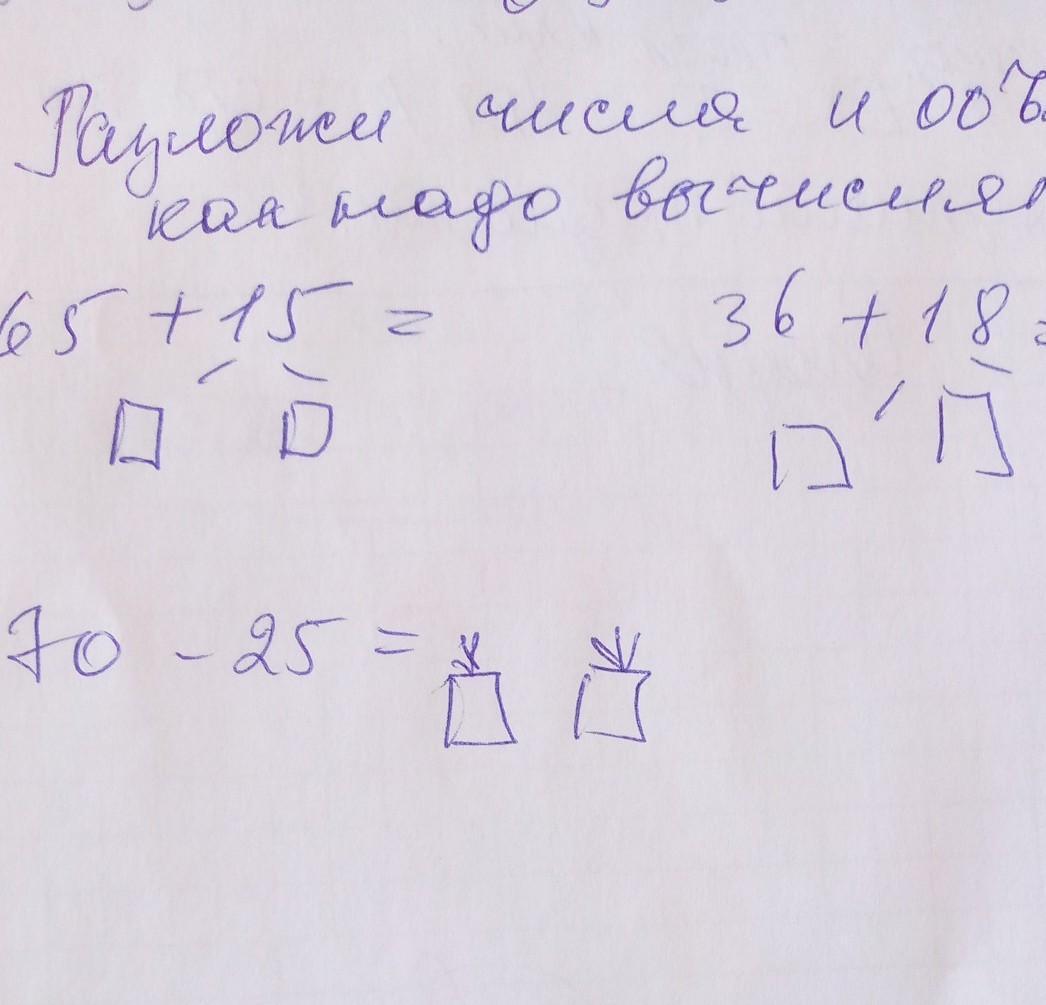 Разложи числа и объ
как надо вычислят
65 + 15 = 36 + 18 =
70 - 25 =